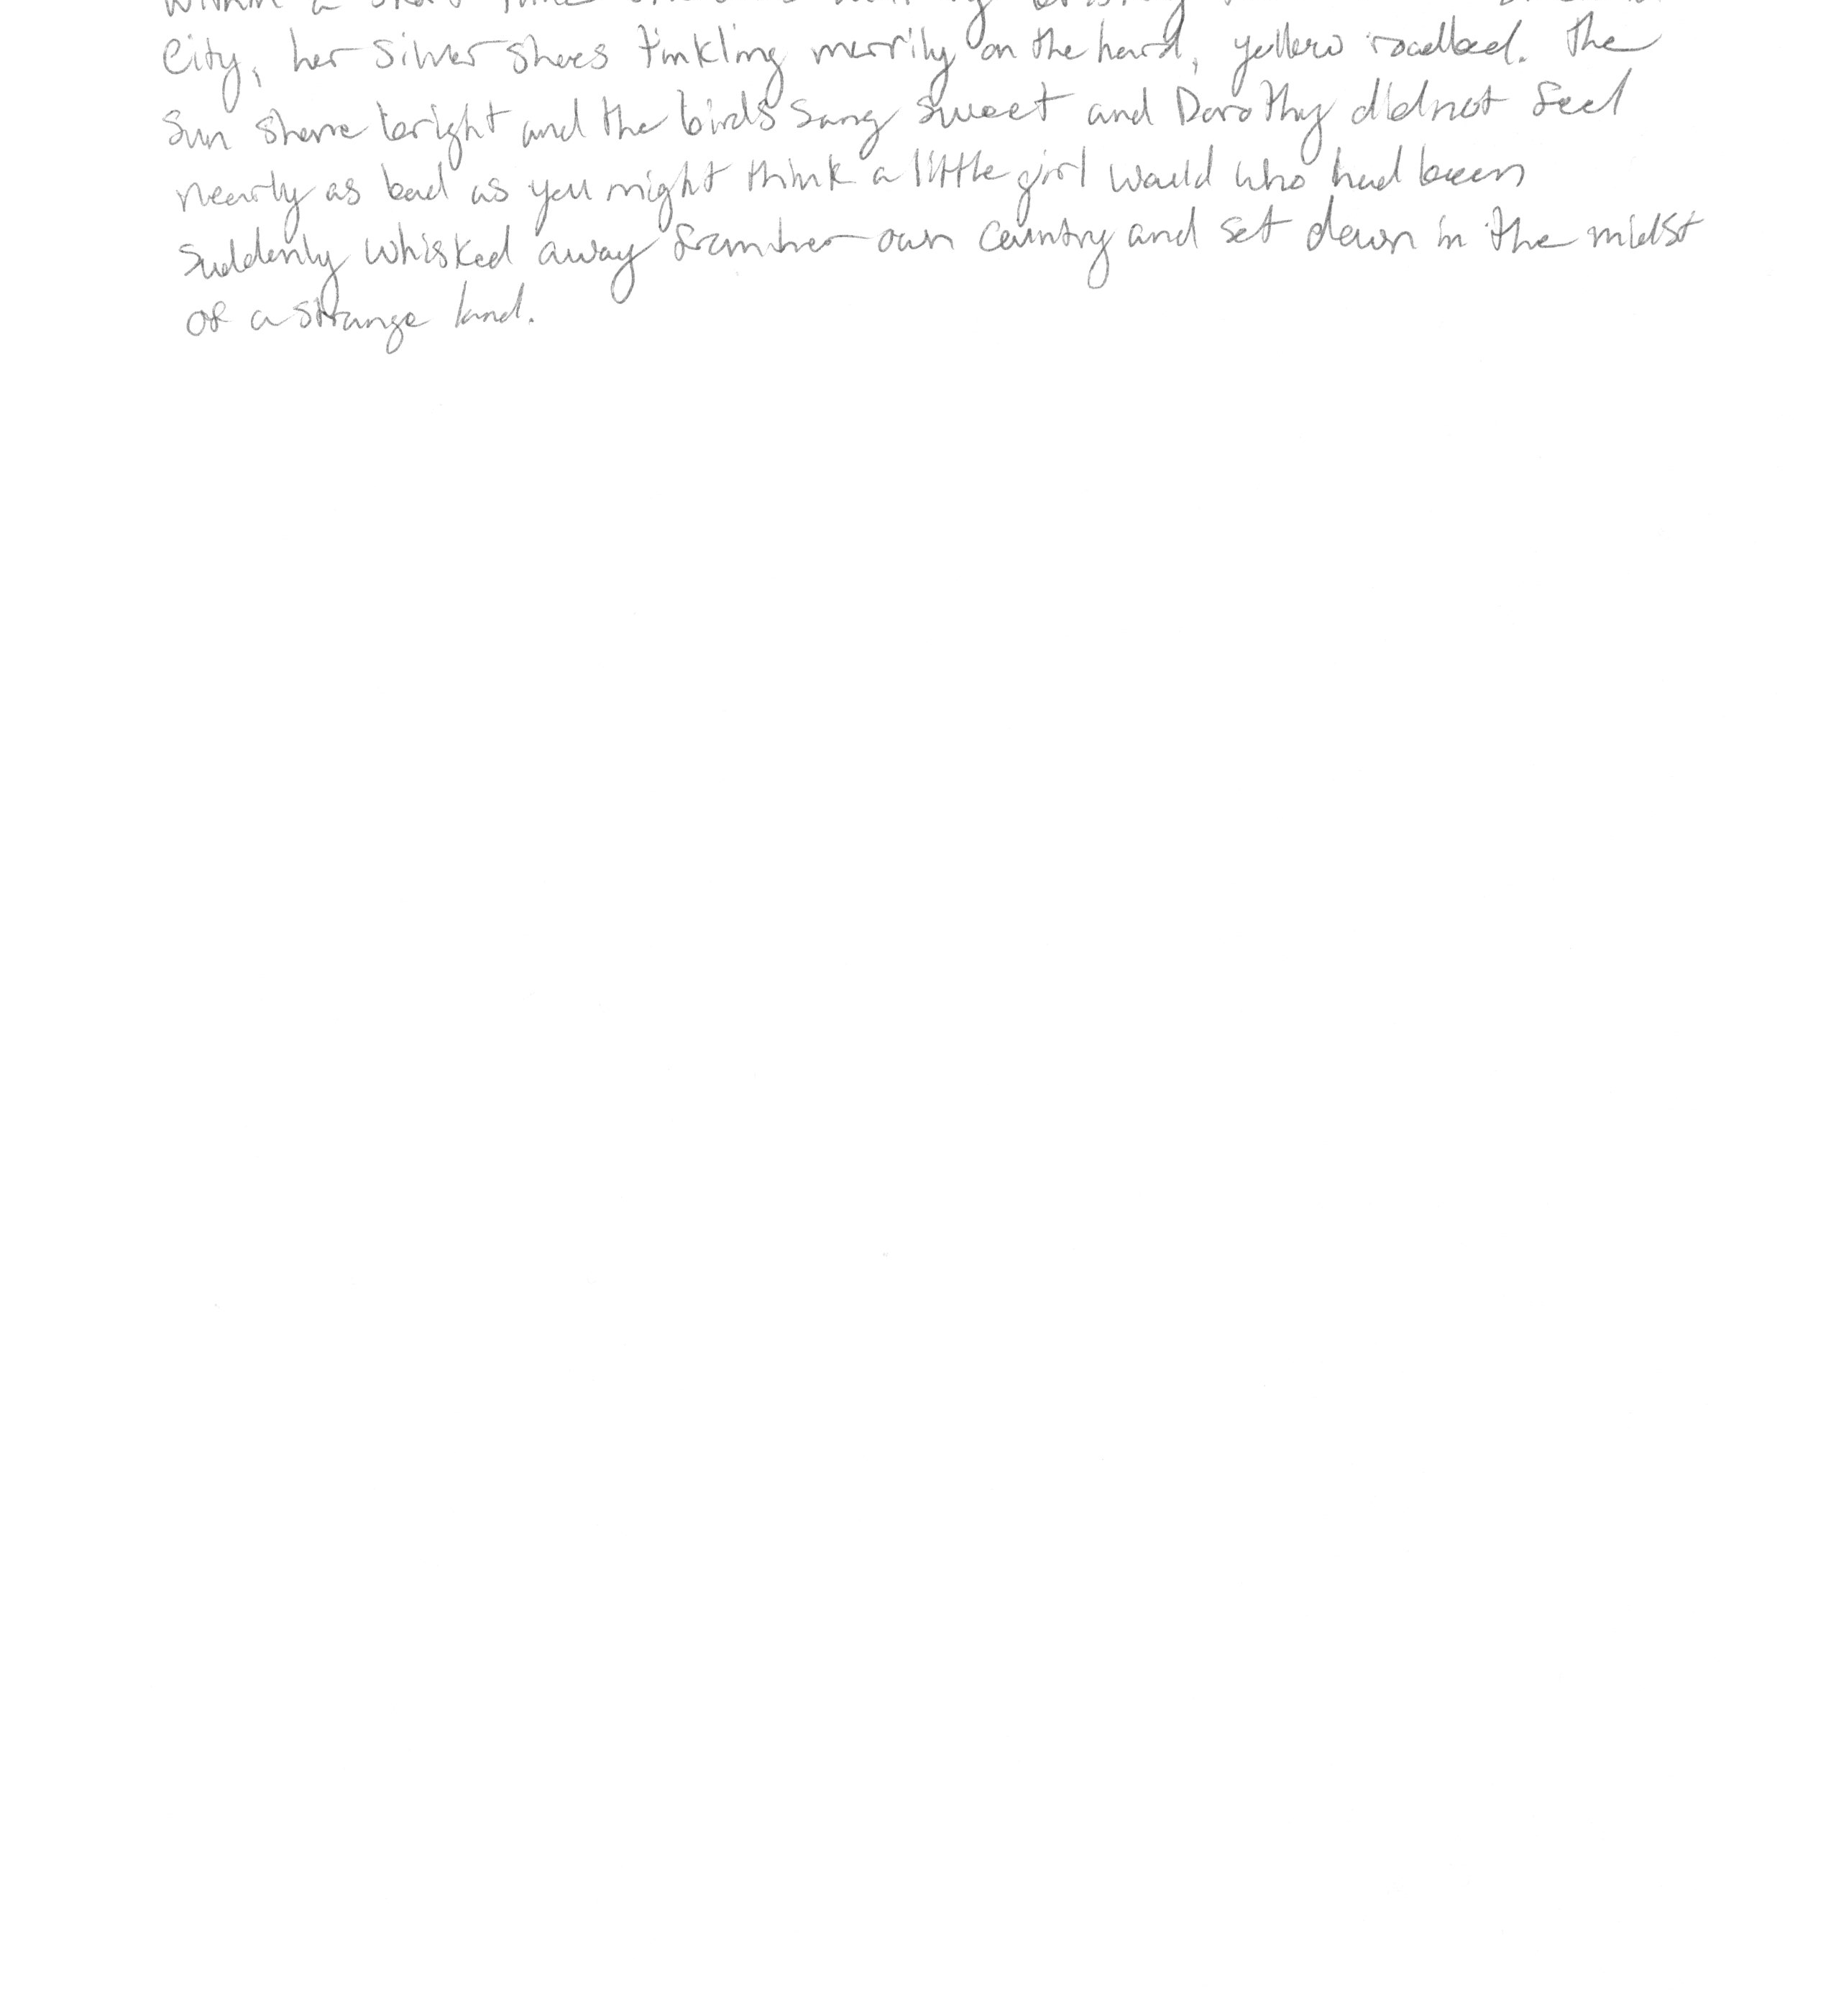 within a short time
City, her silver shoes tinkling merrily on the hard, yellow roadbed. The
sun shone bright and the birds sang sweet and Dorothy did not feel
nearly as bad as you might think a little girl would who had been
suddenly whisked away from her own country and set down in the midst
of a strange land.